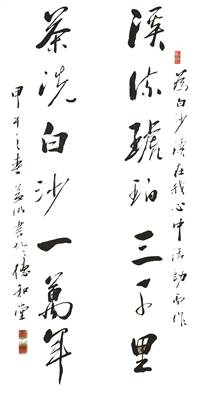 為白沙溪在我心中活動而作
溪流琥珀三千里
茶洗白沙一萬年
甲午之春書於德和堂